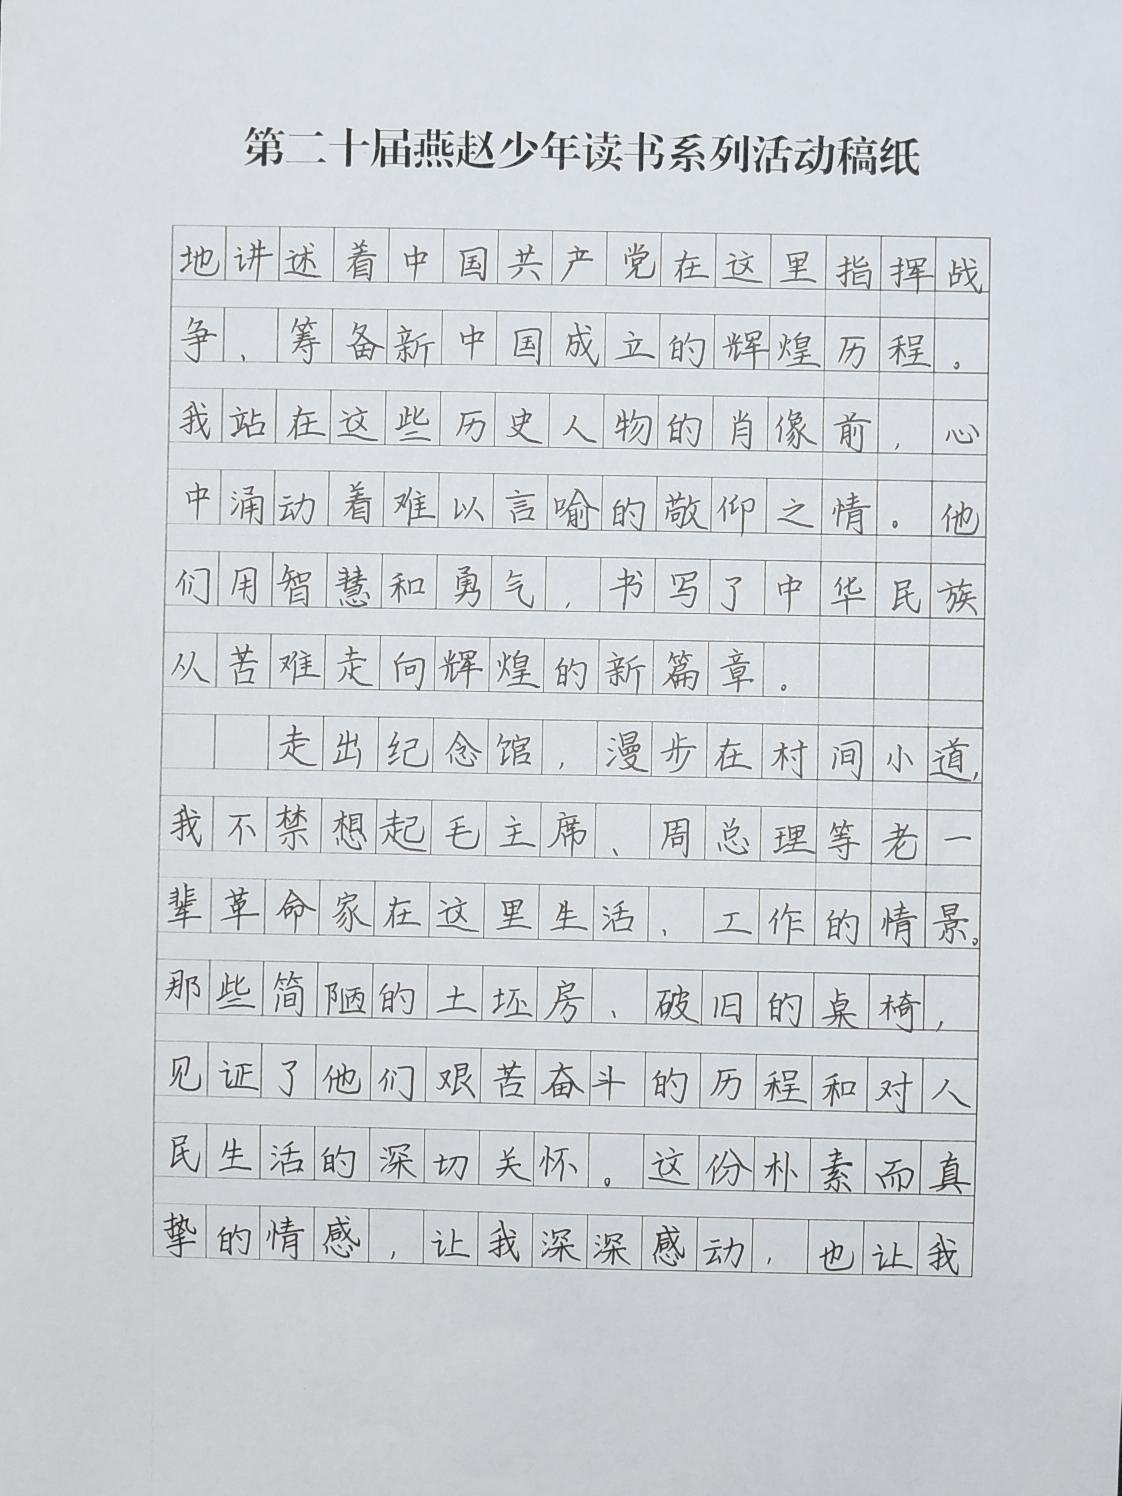 第二十届燕赵少年读书系列活动稿纸
地讲述着中国共产党在这里指挥战
争、筹备新中国成立的辉煌历程。
我站在这些历史人物的肖像前，心
中涌动着难以言喻的敬仰之情。他
们用智慧和勇气，书写了中华民族
从苦难走向辉煌的新篇章。
走出纪念馆，漫步在村间小道，
我不禁想起毛主席、周总理等老一
辈革命家在这里生活、工作的情景。
那些简陋的土坯房、破旧的桌椅，
见证了他们艰苦奋斗的历程和对人
民生活的深切关怀。这份朴素而真
挚的情感，让我深深感动，也让我